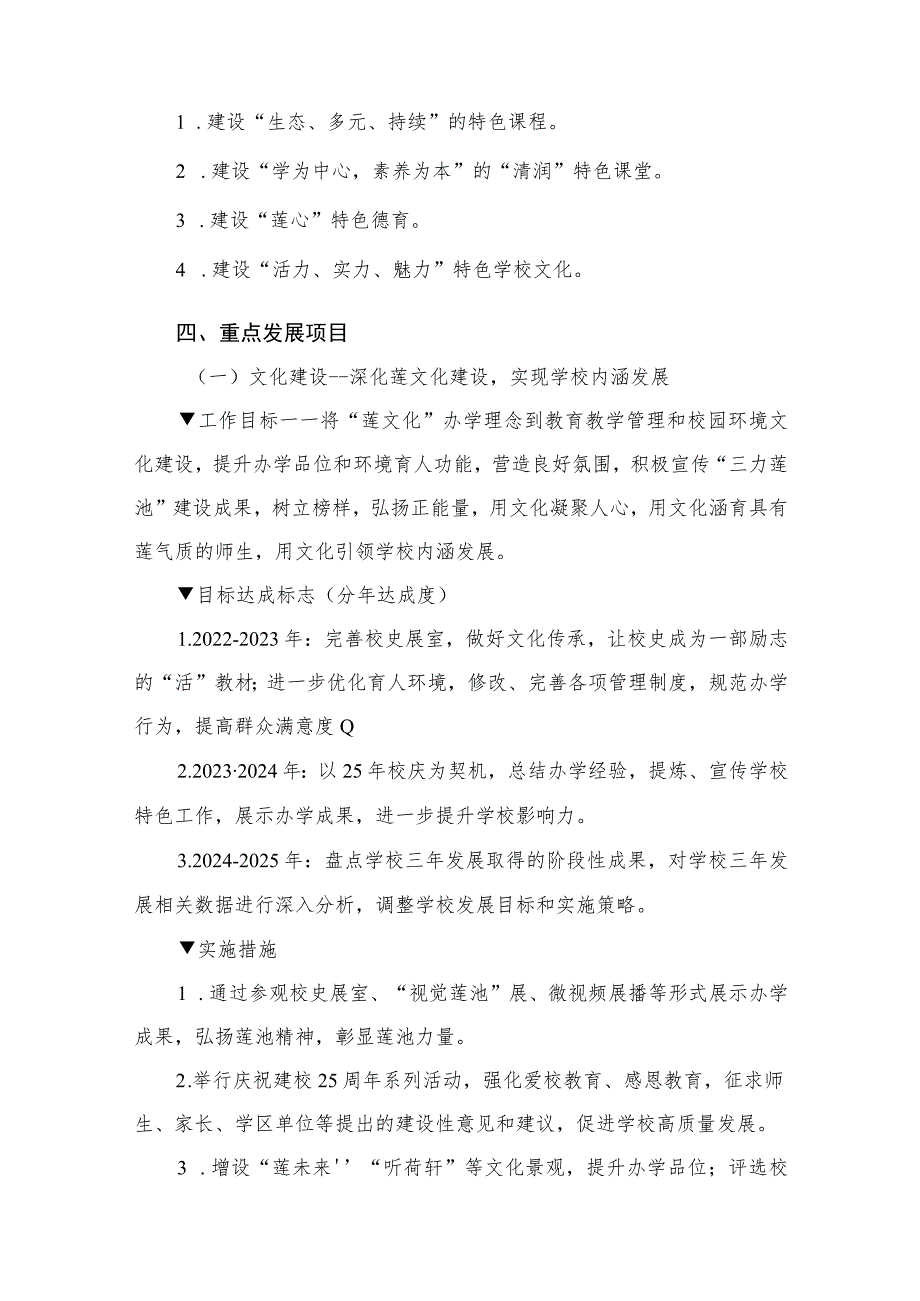 1 .建设“生态、多元、持续”的特色课程。
2 .建设“学为中心，素养为本”的“清润”特色课堂。
3 .建设“莲心”特色德育。
4 .建设“活力、实力、魅力”特色学校文化。
四、重点发展项目
（一）文化建设--深化莲文化建设，实现学校内涵发展
▼工作目标一一将“莲文化”办学理念到教育教学管理和校园环境文
化建设，提升办学品位和环境育人功能，营造良好氛围，积极宣传“三力莲
池”建设成果，树立榜样，弘扬正能量，用文化凝聚人心，用文化涵育具有
莲气质的师生，用文化引领学校内涵发展。
▼目标达成标志（分年达成度）
1.2022-2023 年：完善校史展室，做好文化传承，让校史成为一部励志
的“活”教材；进一步优化育人环境，修改、完善各项管理制度，规范办学
行为，提高群众满意度 Q
2.2023·2024 年：以 25 年校庆为契机，总结办学经验，提炼、宣传学校
特色工作，展示办学成果，进一步提升学校影响力。
3.2024-2025 年：盘点学校三年发展取得的阶段性成果，对学校三年发
展相关数据进行深入分析，调整学校发展目标和实施策略。
▼实施措施
1 .通过参观校史展室、“视觉莲池”展、微视频展播等形式展示办学
成果，弘扬莲池精神，彰显莲池力量。
2.举行庆祝建校 25 周年系列活动，强化爱校教育、感恩教育，征求师
生、家长、学区单位等提出的建设性意见和建议，促进学校高质量发展。
3 .增设“莲未来'’“听荷轩”等文化景观，提升办学品位；评选校